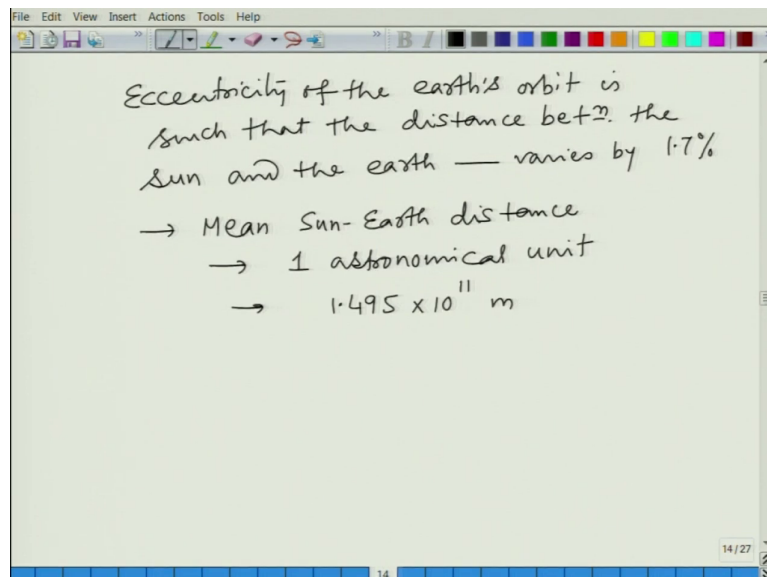 File Edit View Insert Actions Tools Help
B I
Eccentricity of the earth's orbit is
such that the distance betⁿ. the
sun and the earth — varies by 1.7%
→ Mean Sun-Earth distance
→ 1 astronomical unit
→ 1.495 x 10¹¹ m
14/27
14